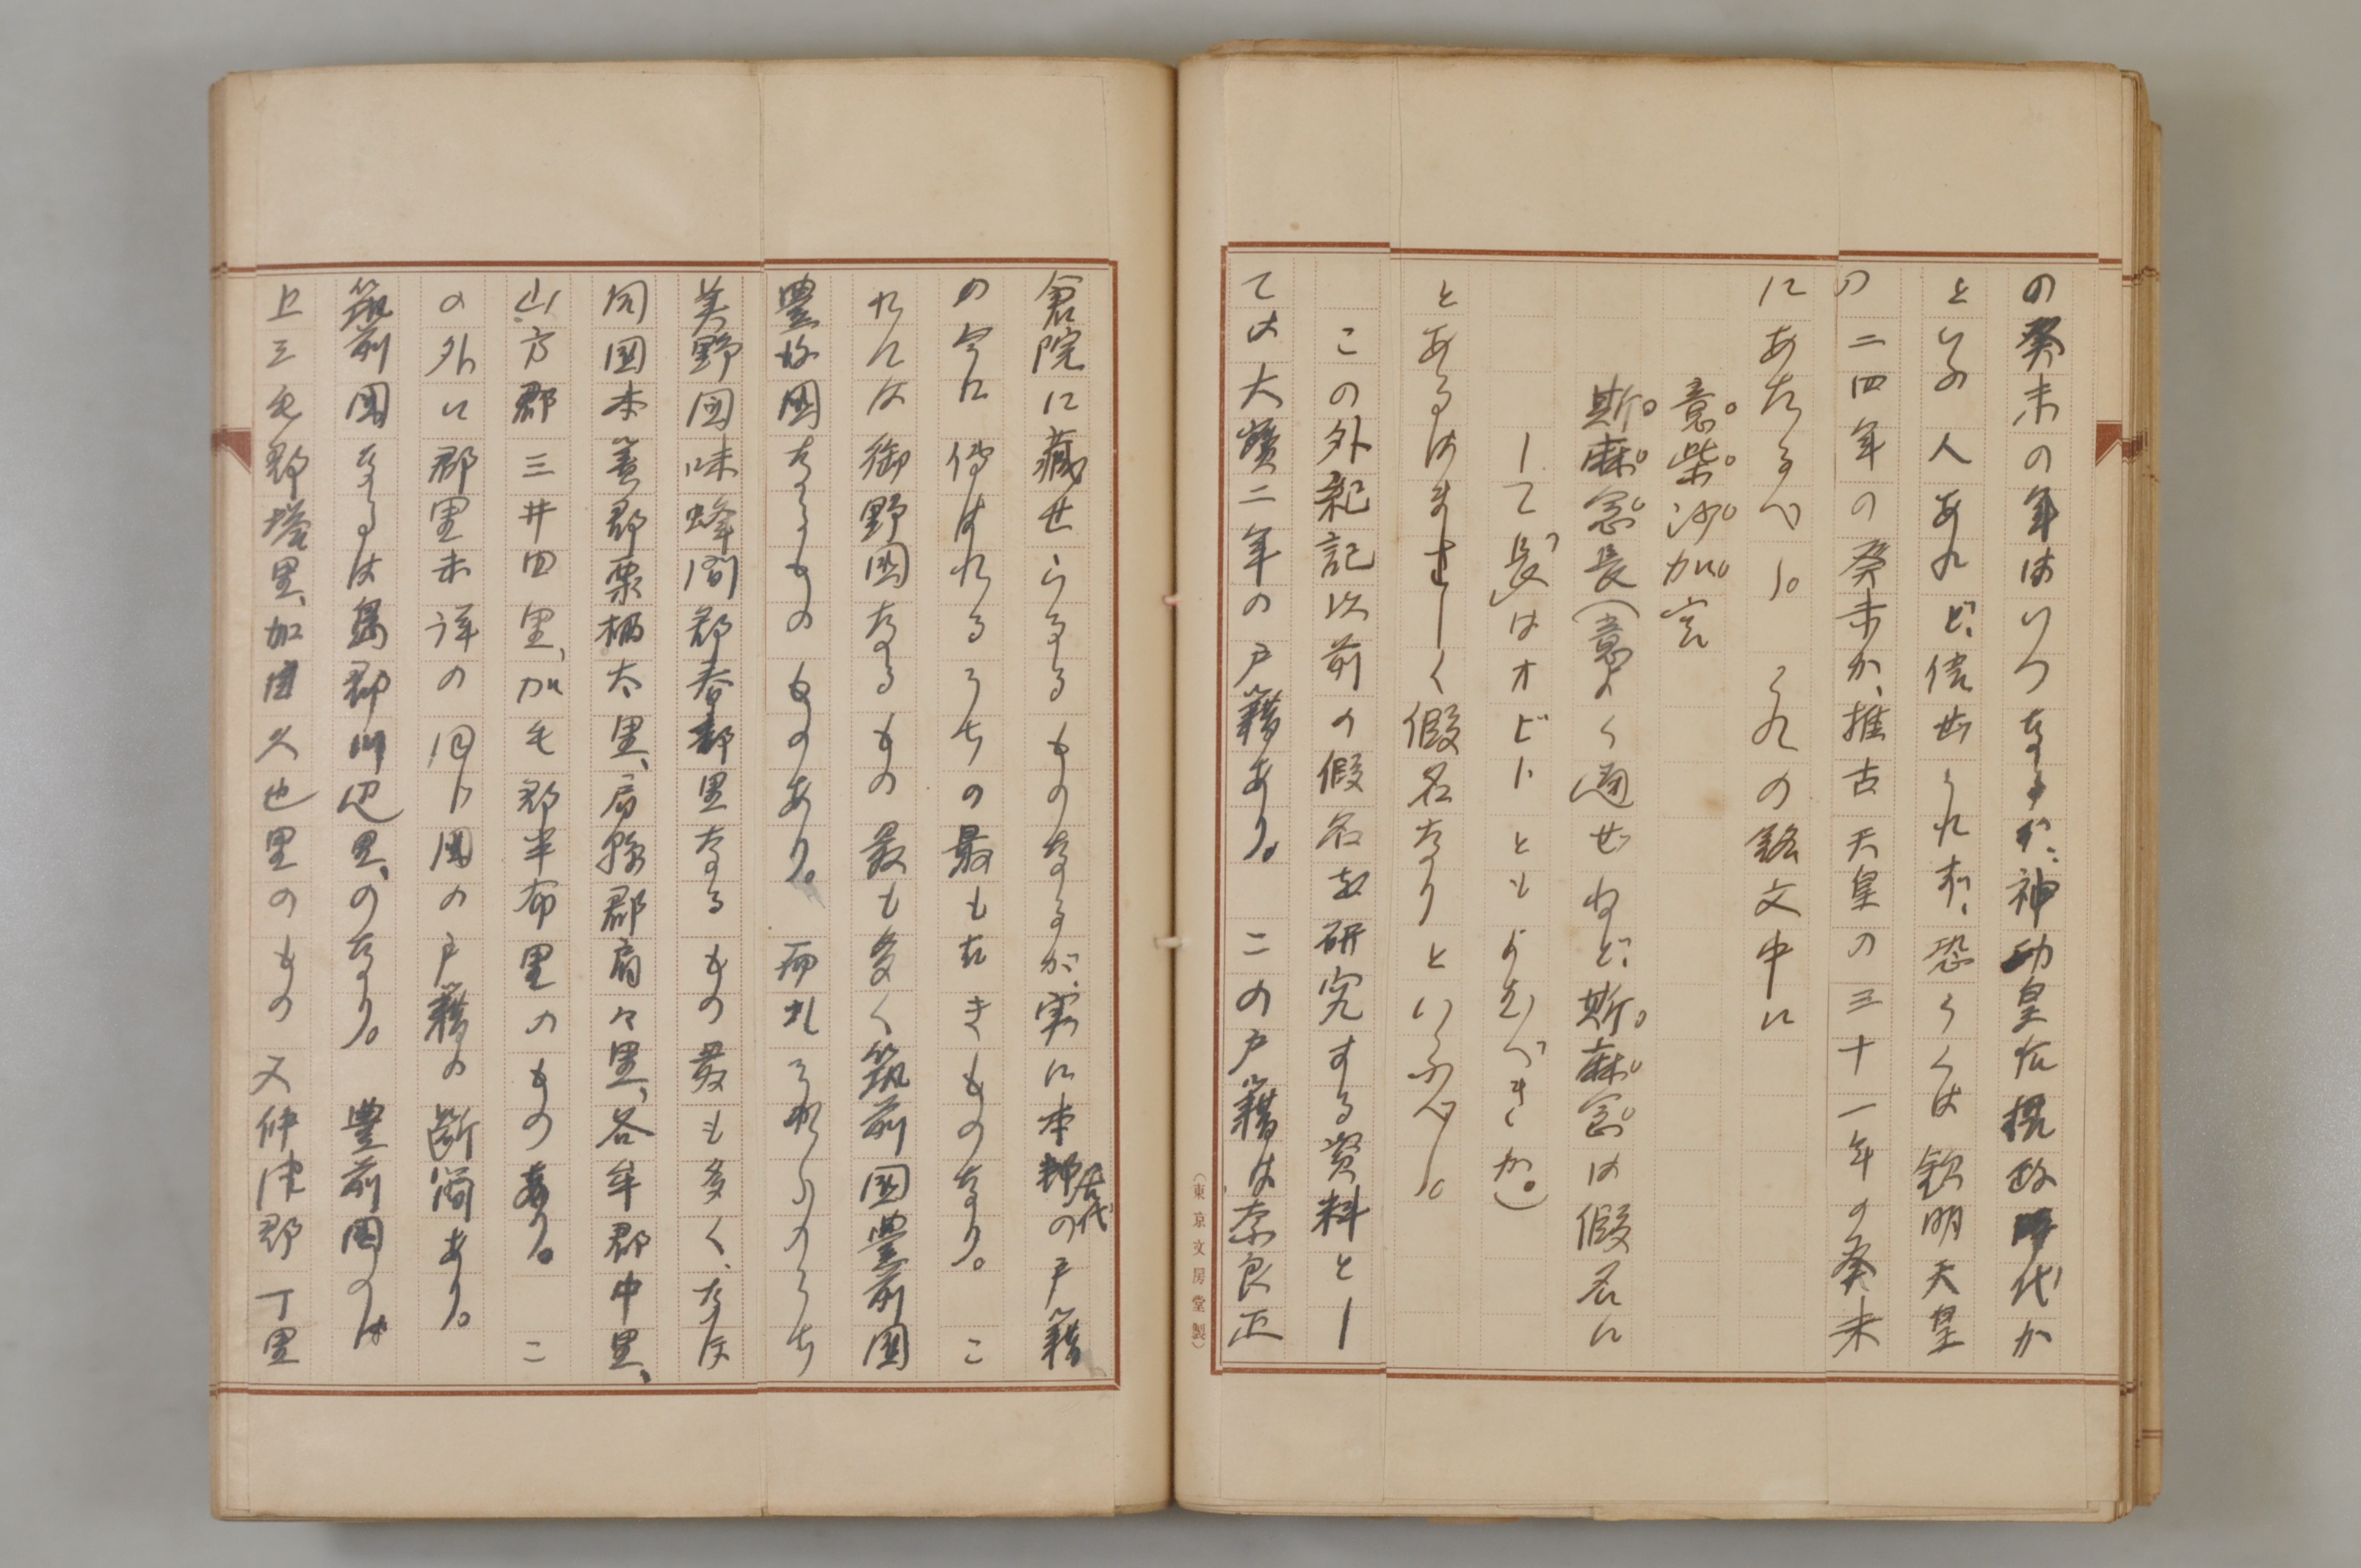 の癸未の年はいつなるか、神功皇后摂政時代か
といふ人あれど、信ぜられず、恐らくは欽明天皇
の二四年の癸未か、推古天皇の三十一年の癸未
にあたるべし。これの銘文中に
意柴沙加宮
斯麻念長(意よく通ぜねど、斯麻念は假名に
して長はオビトともよむべきか。)
とあるはまさしく假名なりといふべし。
この外記記以前の假名を研究する資料とし
ては大寶二年の戸籍あり。この戸籍は奈良正
(東京文房堂製)
倉院に藏せらるるものなるが、実に本邦古代の戸籍
の今に傳はれるうちの最も古きものなり。こ
れには御野國なるもの最も多く筑前國豊前國
豊後國なるもののものあり。而してそれらのうち
美野國味蜂間郡春部里なるもの最も多く、なほ
同國本簀郡栗栖太里、肩縣郡肩々里、各牟郡中里、
山方郡三井田里、加毛郡半布里のものあり。こ
の外に郡里未詳の同じ國の戸籍の斷簡あり。
筑前國なるは嶋郡川辺里、のなり。豊前國のは
上三毛郡塔里、加自久也里のもの又仲津郡丁里